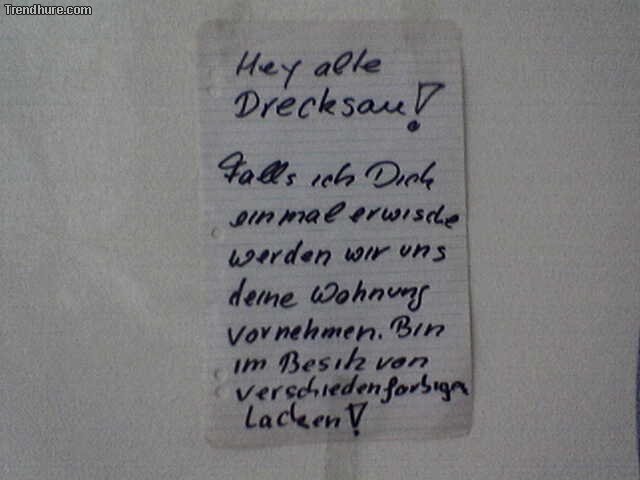 Trendhure.com
Hey alte
Drecksau!
Falls ich Dich
einmal erwische
werden wir uns
deine Wohnung
vornehmen. Bin
im Besitz von
verschiedenfarbigen
Lacken!